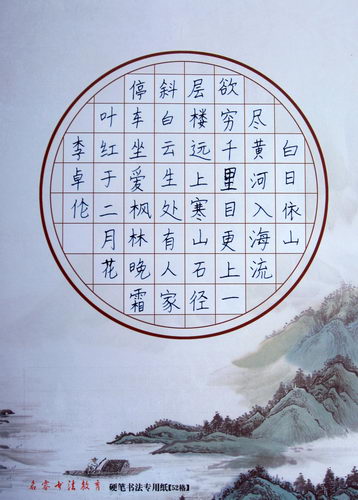 白日依山
尽黄河入海流
欲穷千里目更上一
层楼远上寒山石径
斜白云生处有人家
停车坐爱枫林晚霜
叶红于二月花
李卓伦
名家书法教育 硬笔书法专用纸【52格】